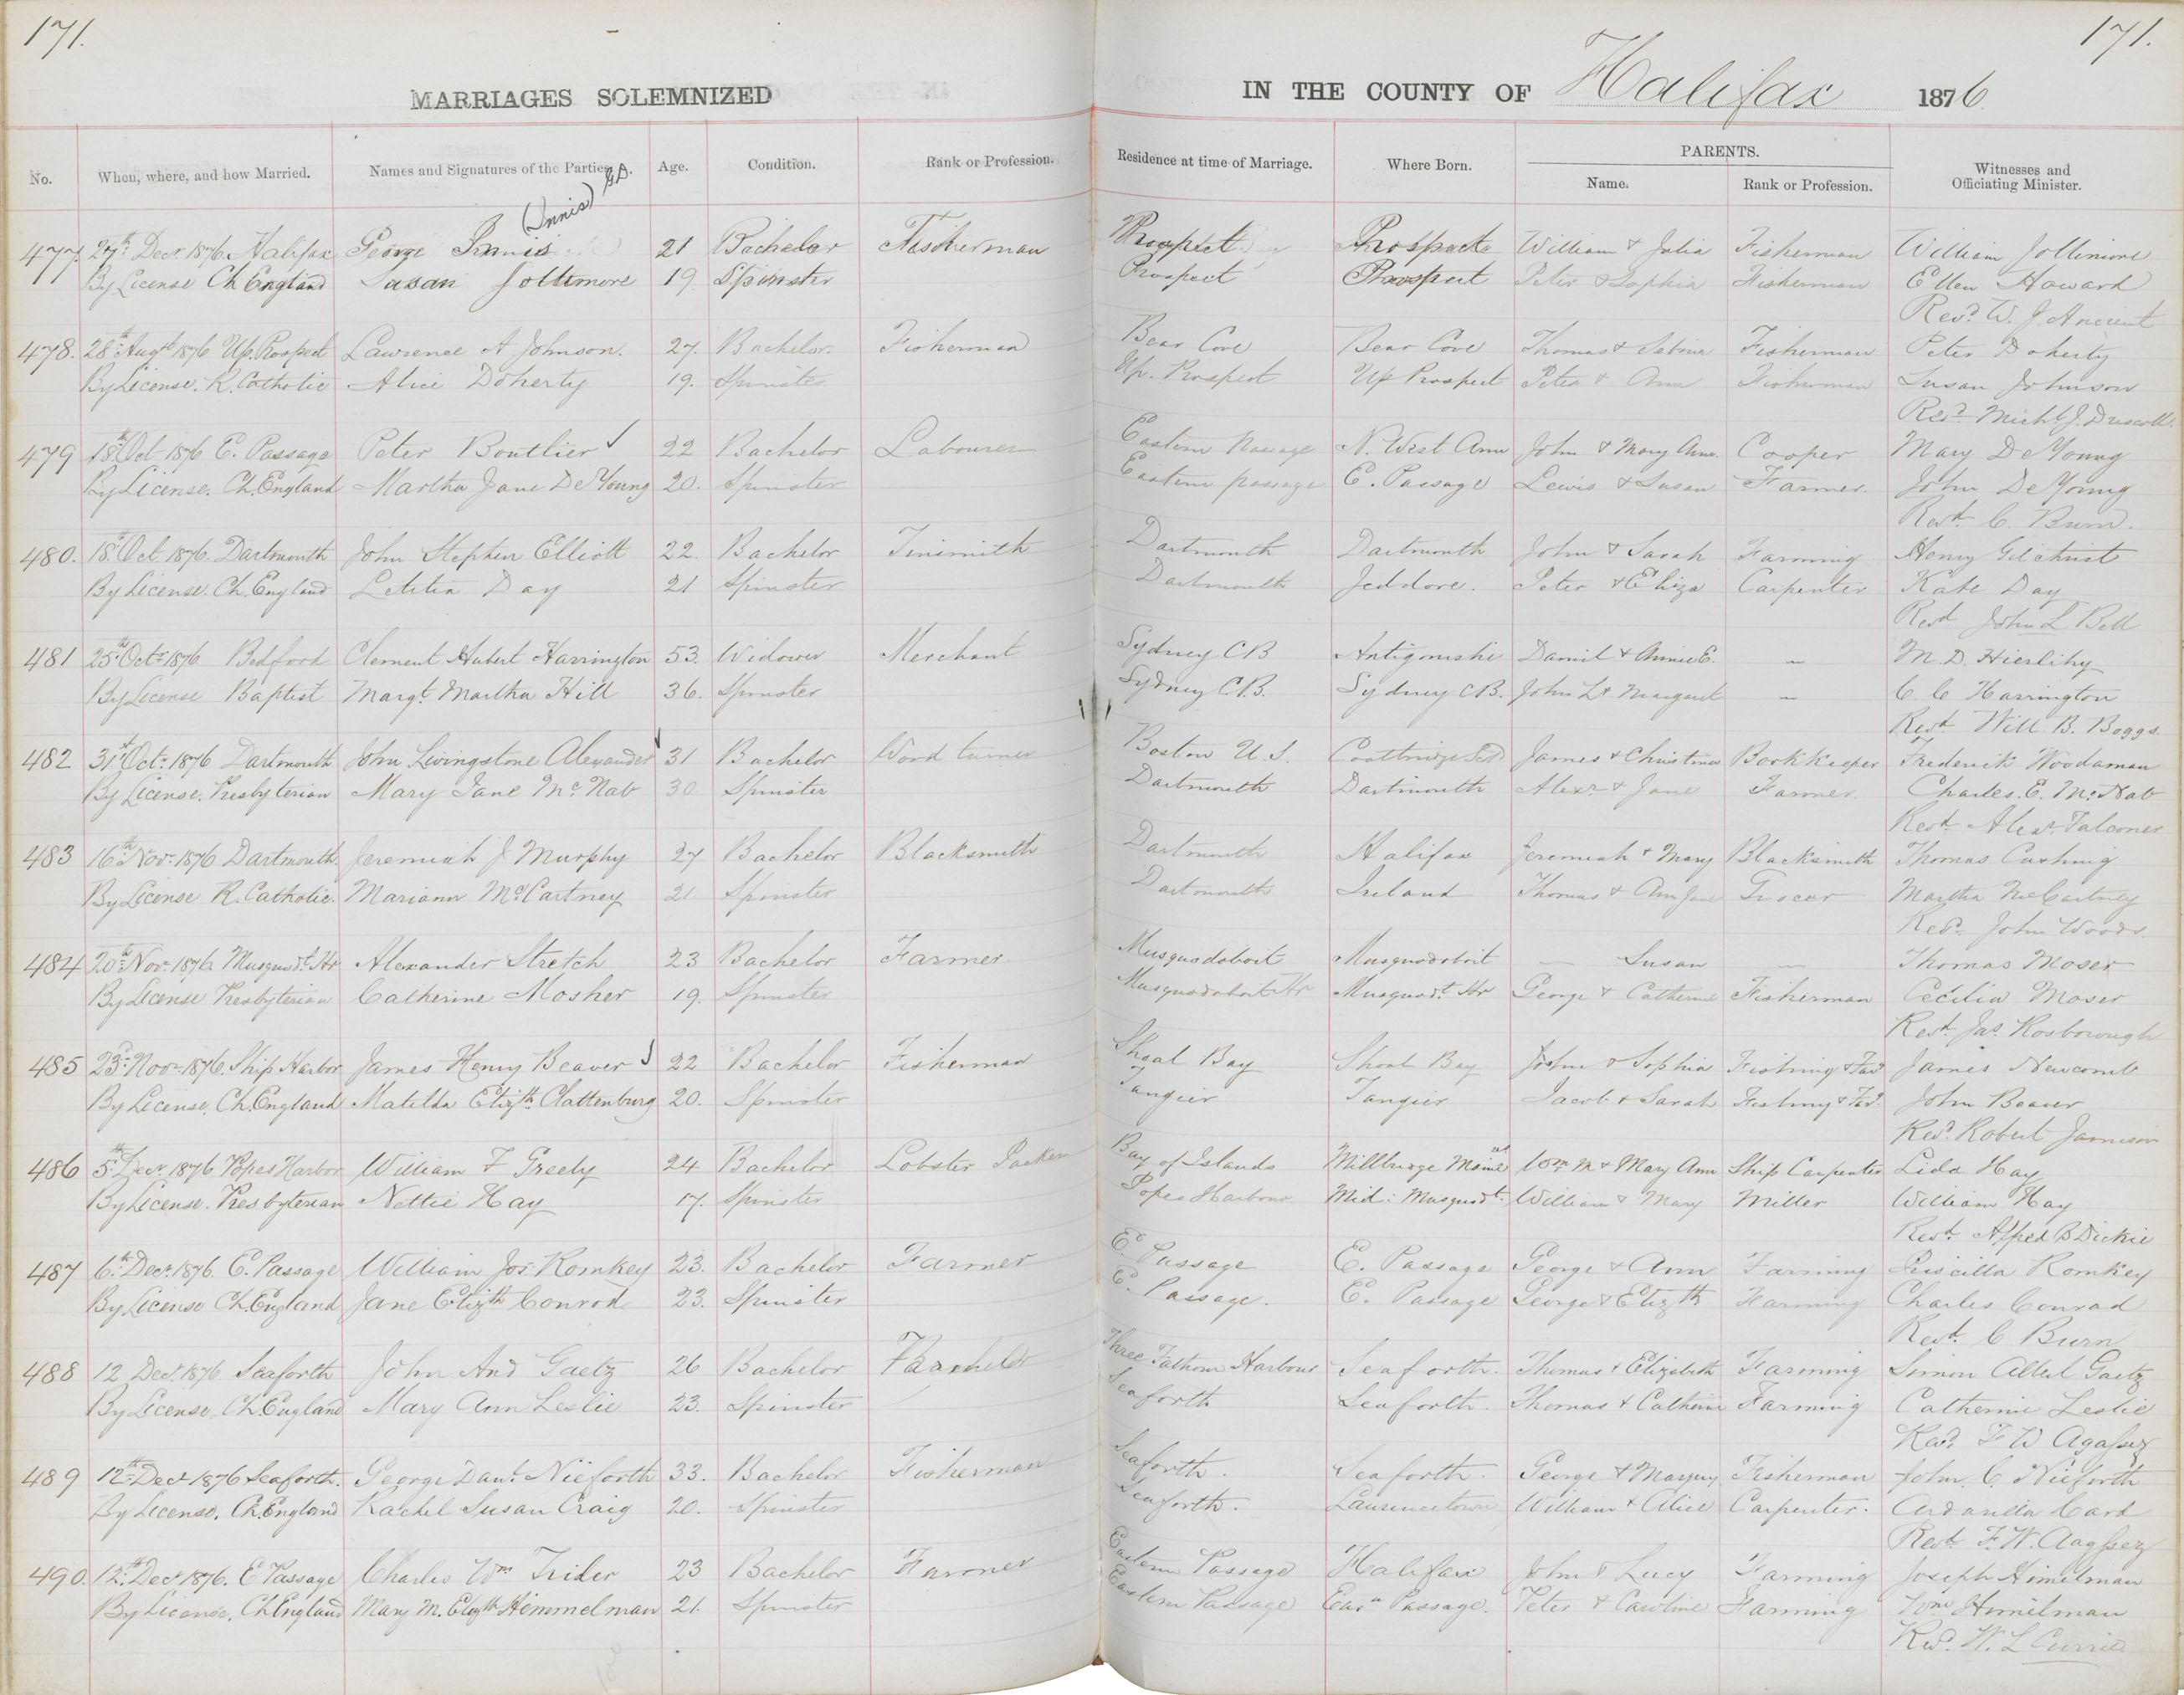 171. 171.
MARRIAGES SOLEMNIZED IN THE COUNTY OF Halifax 1876
No. When, where, and how Married. Names and Signatures of the Parties. Age. Condition. Rank or Profession. Residence at time of Marriage. Where Born. PARENTS. Name. Rank or Profession. Witnesses and Officiating Minister.
(Innis) G.D.
477. 27th Decr. 1876 Halifax George Innis 21 Bachelor Fisherman Prospect Prospect William & Julia Fisherman William Jollimore
By License Ch England Susan Jollimore 19 Spinster Prospect Prospect Peter & Sophia Fisherman Ellen Howard
Revd. W. J. Ancient
478. 28th Augt 1876 Up. Prospect Lawrence A Johnson. 27. Bachelor. Fisherman Bear Cove Bear Cove Thomas & Sabina Fisherman Peter Doherty
By License. R. Catholic Alice Doherty 19. Spinster Up. Prospect Up Prospect Peter & Ann Fisherman Susan Johnson
Revd Michl. J. Driscoll.
479 18th Oct 1876 E. Passage Peter Boutlier 22 Bachelor Labourer Eastern Passage N. West Arm John & Mary Ann. Cooper Mary DeYoung
By License. Ch. England Martha Jane DeYoung 20. Spinster Eastern passage E. Passage Lewis & Susan Farmer. John DeYoung
Revd C. Burn.
480. 18th Oct. 1876. Dartmouth John Stephen Elliott 22. Bachelor Tinsmith Dartmouth Dartmouth John & Sarah Farming Henry Gilchrist
By License. Ch. England Letitia Day 21 Spinster Dartmouth Jeddore. Peter & Eliza Carpenter Kate Day
Revd John L Bell
481 25th Octr 1876 Bedford Clement Hubert Harrington 53. Widower Merchant Sydney CB Antigonishe Daniel & Annie E. — M. D. Hierlihy
By License Baptist Margt. Martha Hill 36. Spinster Sydney C.B. Sydney CB. John L & Margaret — C. C Harrington
Revd Will B. Boggs.
482 31st Octr. 1876 Dartmouth John Livingstone Alexander 31 Bachelor Wood turner Boston U.S. James & Christina Bookkeeper Frederick Woodaman
By License. Presbyterian Mary Jane McNab 30 Spinster Dartmouth Dartmouth Alexr & Jane Farmer. Charles. E. McNab
Revd Alexr Falconer
483 16th Novr. 1876 Dartmouth. Jeremiah J Murphy 27 Bachelor Blacksmith Dartmouth Halifax Jeremiah & Mary Blacksmith Thomas Cushing
By License R. Catholic. Mariann McCartney 21 Spinster Dartmouth Ireland Thomas & Ann Jane Grocer Martha McCartney
Revd John Woods
484 20th Novr. 1876 Musquodt. Hr Alexander Stretch 23 Bachelor Farmer. Musquodoboit Musquodoboit — Susan — Thomas Moser
By License Presbyterian Catherine Mosher 19. Spinster Musquodoboit Hr Musquodt. Hr George & Catherine Fisherman Cecilia Moser
Revd. Jas Rosborough
485 23rd Novr 1876. Ship Harbor James Henry Beaver 22 Bachelor Fisherman Shoal Bay Shoal Bay John & Sophia Fishing & Far. James Newcomb
By License. Ch. England Matilda Elizth. Clattenburg 20. Spinster Tangier Tangier Jacob & Sarah Fishing & Far. John Beaver
Revd. Robert Jamison
486 5th Decr. 1876 Popes Harbor William F Greely 24 Bachelor Lobster Packer Bay of Islands Millbridge Maine Wm M & Mary Ann Ship Carpenter Lida Hay
By License. Presbyterian Nettie Hay 17. Spinster Popes Harbour Mid: Musquodt. William & Mary Miller William Hay
Revd Alfred B Dickie
487 6th Decr. 1876. E. Passage William Jos. Romkey 23. Bachelor Farmer E. Passage E. Passage George & Ann Farming Priscilla Romkey
By License Ch. England Jane Elizth Conrod 23. Spinster E. Passage. E. Passage George & Elizth Farming Charles Conrad
Revd. C Burn
488 12 Decr. 1876 Seaforth John And Gaetz 26 Bachelor Three Fathom Harbour Seaforth. Thomas & Elizabeth Farming Simon Albert Gaetz
By License, Ch. England Mary Ann Leslie 23. Spinster Seaforth Seaforth. Thomas & Catherine Farming Catherine Leslie
Revd. F W Agassiz
489 12th Decr 1876 Seaforth. George Danl. Nieforth 33. Bachelor Fisherman Seaforth. Seaforth. George & Margery Fisherman John. C. Nieforth
By License. Ch. England Rachel Susan Craig 20. Spinster Seaforth. Lawrencetown William & Alice Carpenter.
Revd. F. W.
490. 12th Decr 1876. E Passage Charles Wm Trider 23 Bachelor Farmer Eastern Passage Halifax John & Lucy Farming Joseph Himelman
By License. Ch England Mary M. Elizth Himmelman 21. Spinster Eastern Passage Easn Passage. Peter & Caroline Farming Wm Himelman
Revd. W. L Currie